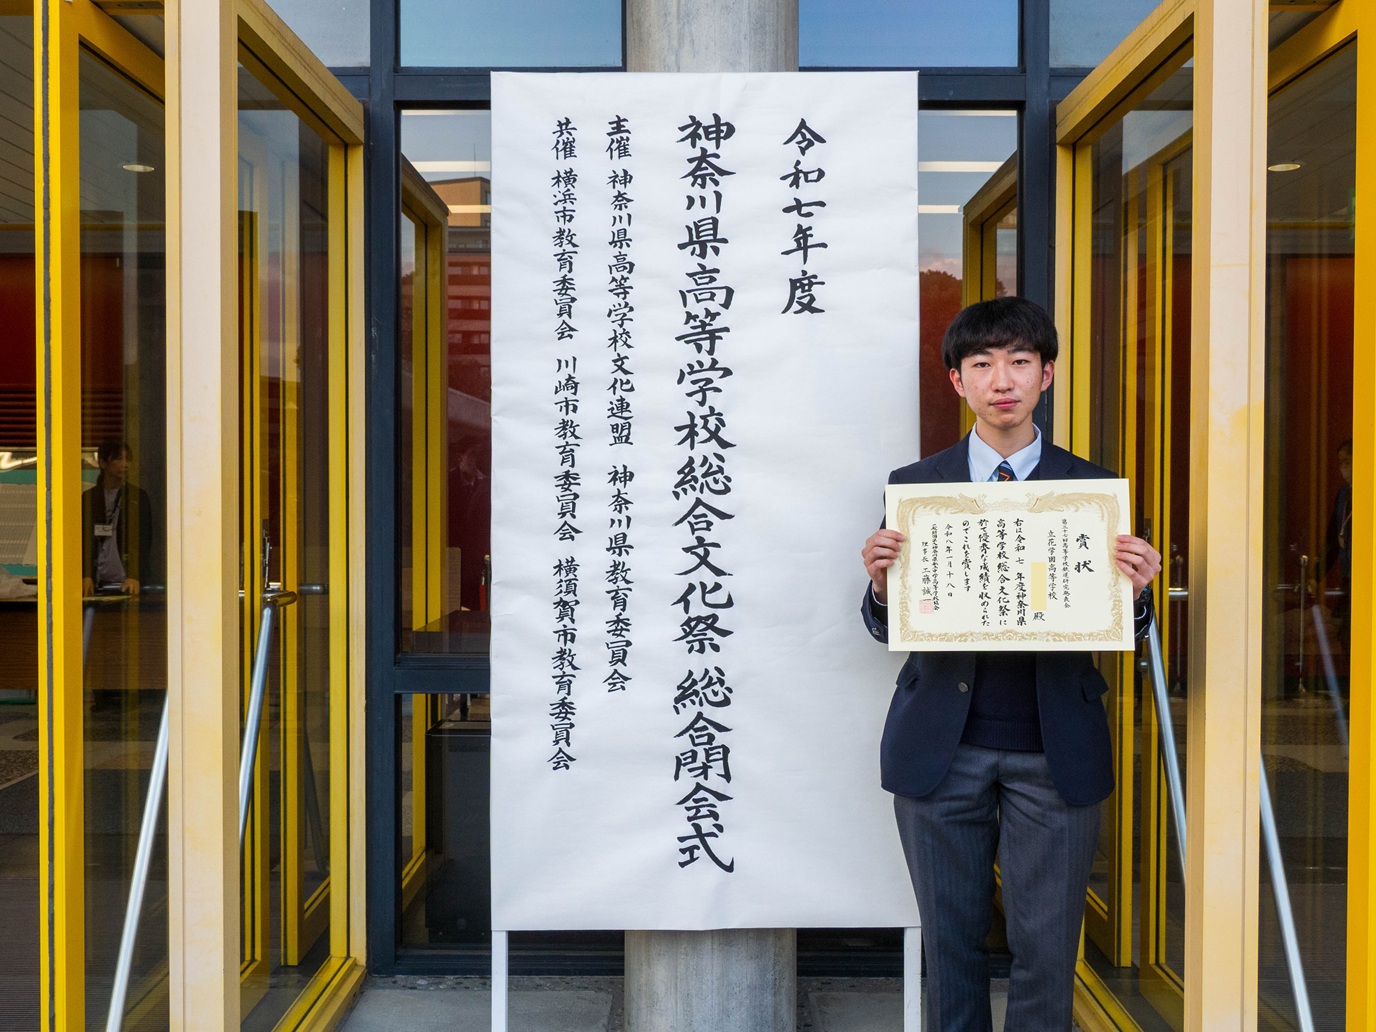 令和七年度
神奈川県高等学校総合文化祭 総合閉会式
主催 神奈川県高等学校文化連盟 神奈川県教育委員会
共催 横浜市教育委員会 川崎市教育委員会 横須賀市教育委員会
賞状
第三十七回高等学校鉄道研究発表会
立花学園高等学校
殿
右は令和 七 年度神奈川県
高等学校総合文化祭に
於て優秀な成績を収められた
のでこれを賞します
令和八年一月十八日
理事長 工藤誠一